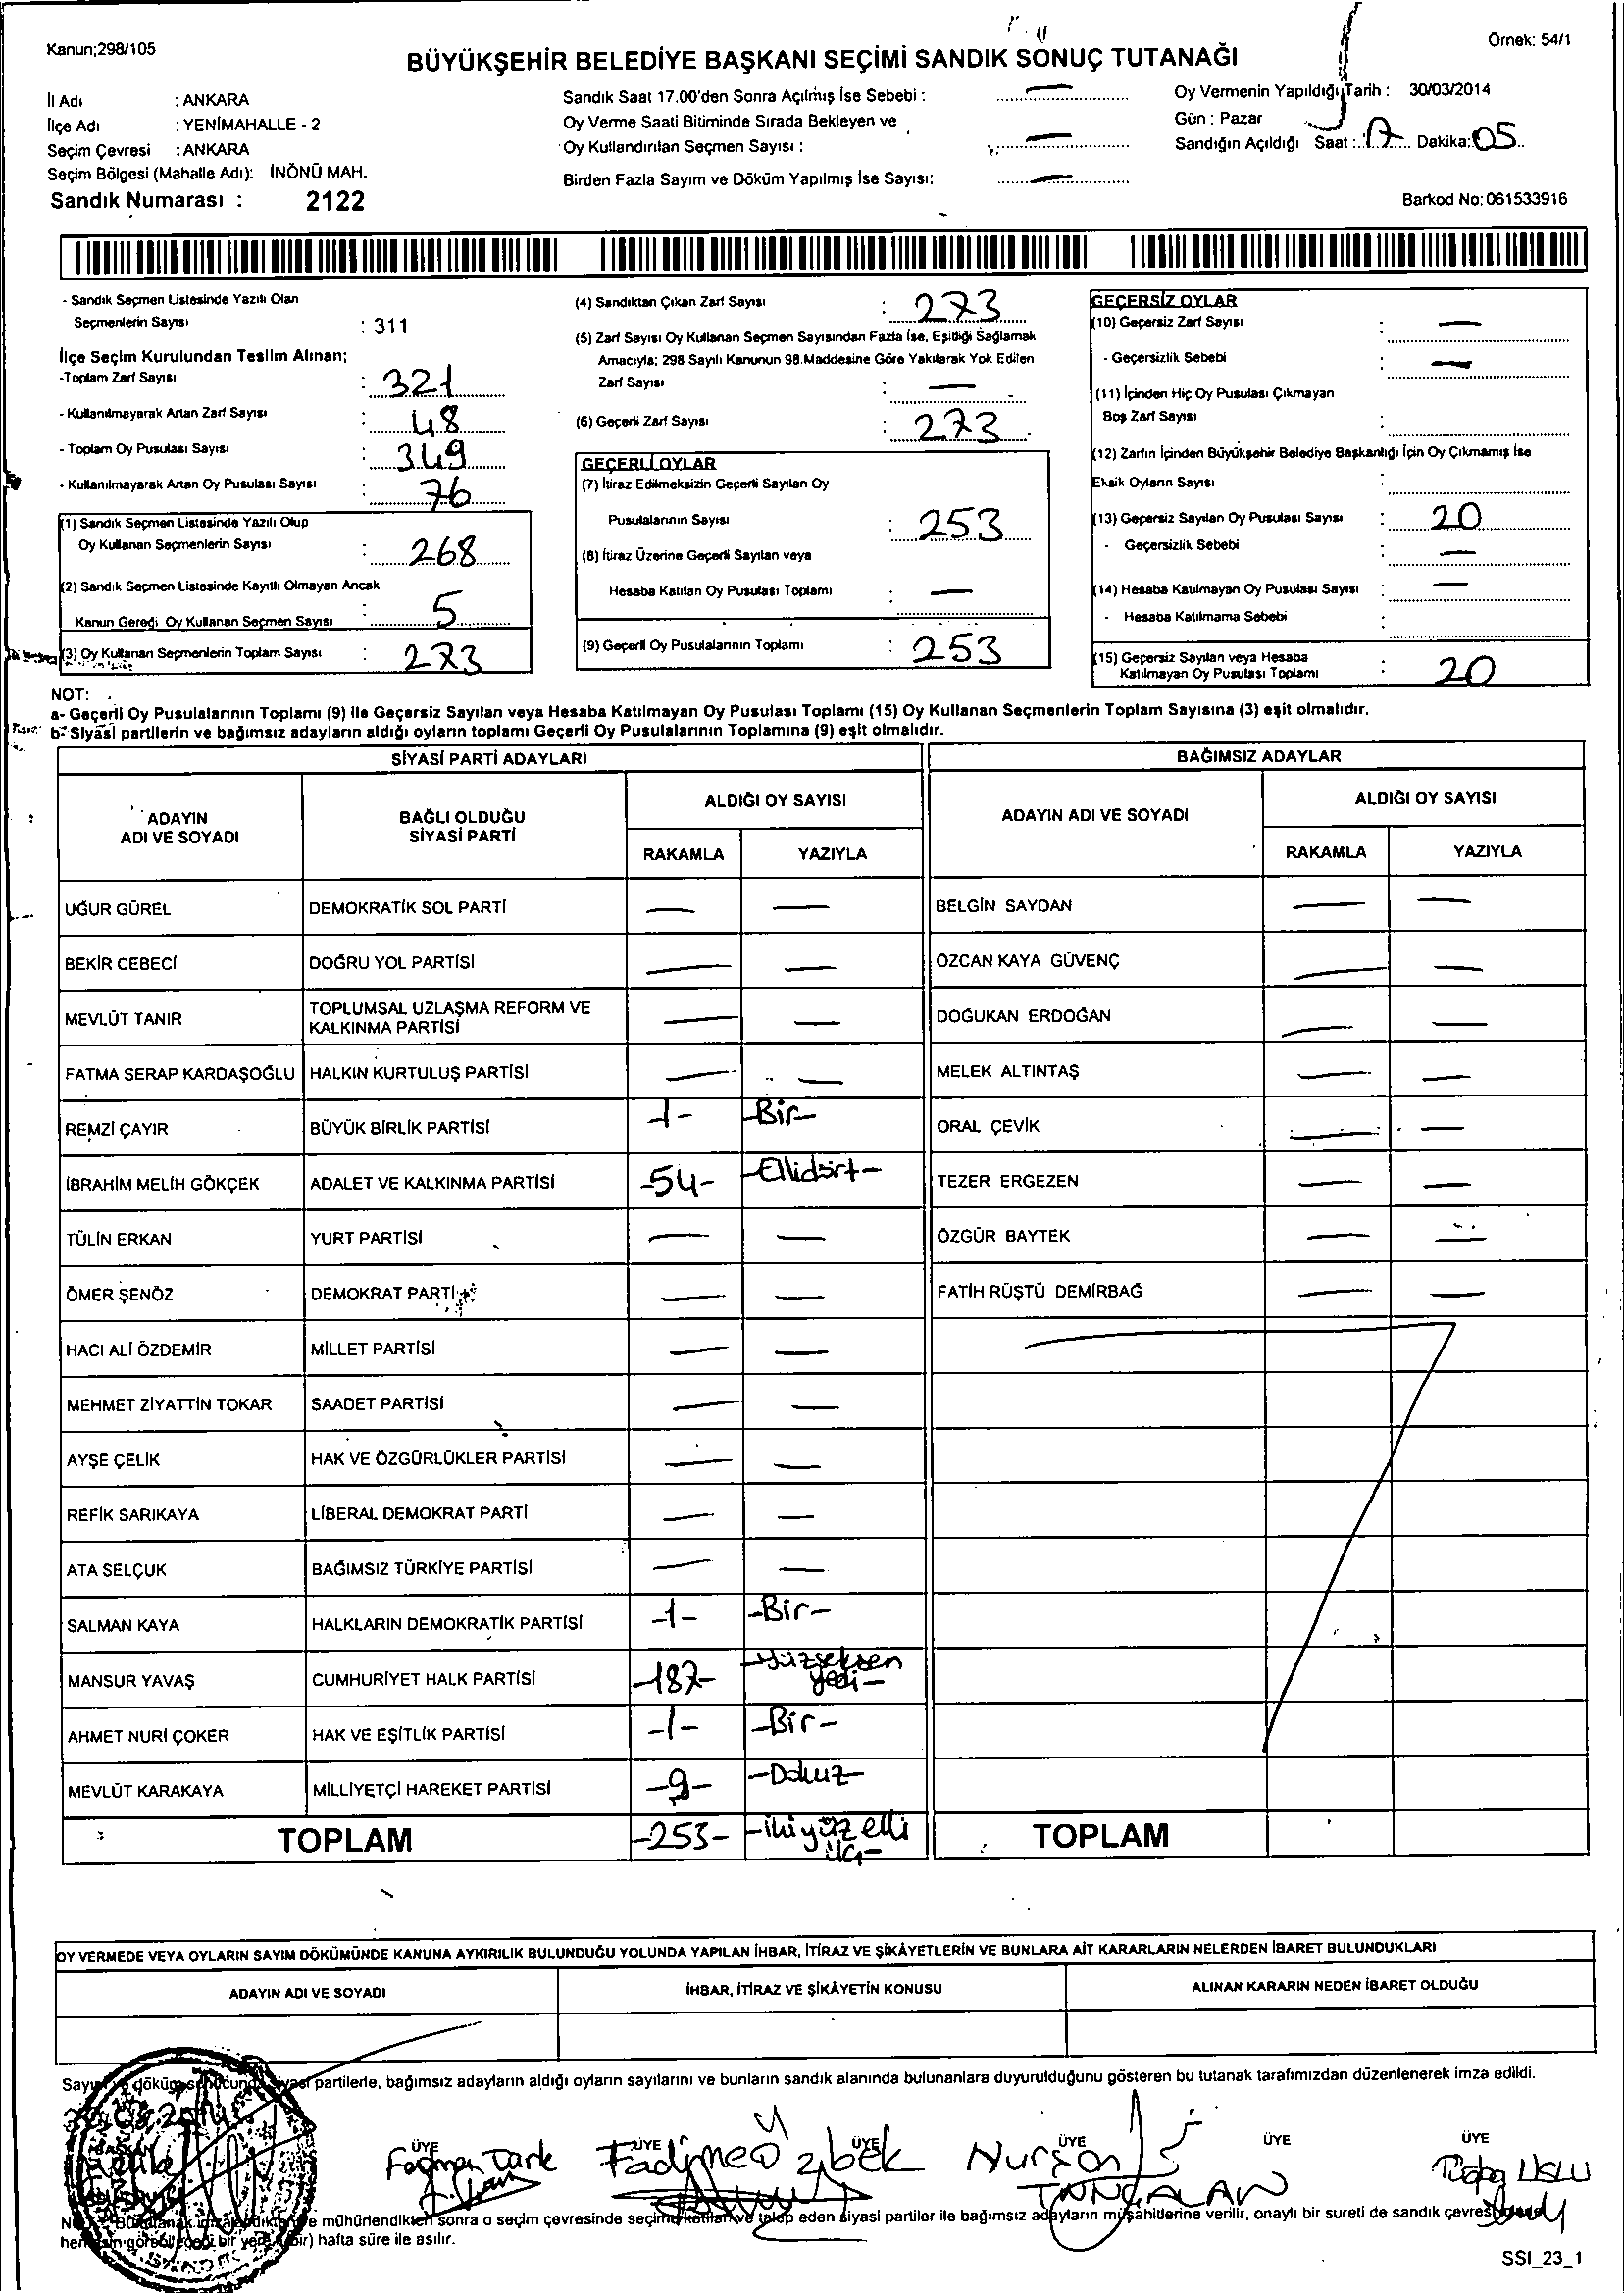 Kanun;298/105
Örnek: 54/1
BÜYÜKŞEHİR BELEDİYE BAŞKANI SEÇİMİ SANDIK SONUÇ TUTANAĞI
İl Adı : ANKARA
İlçe Adı : YENİMAHALLE - 2
Seçim Çevresi : ANKARA
Seçim Bölgesi (Mahalle Adı): İNÖNÜ MAH.
Sandık Numarası : 2122
Sandık Saat 17.00'den Sonra Açılmış İse Sebebi : —
Oy Verme Saati Bitiminde Sırada Bekleyen ve
Oy Kullandırılan Seçmen Sayısı : —
Birden Fazla Sayım ve Döküm Yapılmış İse Sayısı: —
Oy Vermenin Yapıldığı Tarih : 30/03/2014
Gün : Pazar
Sandığın Açıldığı Saat : 17 Dakika: 05
Barkod No: 061533916
- Sandık Seçmen Listesinde Yazılı Olan
Seçmenlerin Sayısı : 311
İlçe Seçim Kurulundan Teslim Alınan;
-Toplam Zarf Sayısı : 321
- Kullanılmayarak Artan Zarf Sayısı : 48
- Toplam Oy Pusulası Sayısı : 349
- Kullanılmayarak Artan Oy Pusulası Sayısı : 76
(1) Sandık Seçmen Listesinde Yazılı Olup
Oy Kullanan Seçmenlerin Sayısı : 268
(2) Sandık Seçmen Listesinde Kayıtlı Olmayan Ancak
Kanun Gereği Oy Kullanan Seçmen Sayısı : 5
(3) Oy Kullanan Seçmenlerin Toplam Sayısı : 273
(4) Sandıktan Çıkan Zarf Sayısı : 273
(5) Zarf Sayısı Oy Kullanan Seçmen Sayısından Fazla İse, Eşitliği Sağlamak
Amacıyla; 298 Sayılı Kanunun 98.Maddesine Göre Yakılarak Yok Edilen
Zarf Sayısı : —
(6) Geçerli Zarf Sayısı : 273
GEÇERLİ OYLAR
(7) İtiraz Edilmeksizin Geçerli Sayılan Oy
Pusulalarının Sayısı : 253
(8) İtiraz Üzerine Geçerli Sayılan veya
Hesaba Katılan Oy Pusulası Toplamı : —
(9) Geçerli Oy Pusulalarının Toplamı : 253
GEÇERSİZ OYLAR
(10) Geçersiz Zarf Sayısı : —
- Geçersizlik Sebebi : —
(11) İçinden Hiç Oy Pusulası Çıkmayan
Boş Zarf Sayısı :
(12) Zarfın İçinden Büyükşehir Belediye Başkanlığı İçin Oy Çıkmamış İse
Eksik Oyların Sayısı :
(13) Geçersiz Sayılan Oy Pusulası Sayısı : 20
- Geçersizlik Sebebi : —
(14) Hesaba Katılmayan Oy Pusulası Sayısı : —
- Hesaba Katılmama Sebebi :
(15) Geçersiz Sayılan veya Hesaba
Katılmayan Oy Pusulası Toplamı : 20
NOT:
a- Geçerli Oy Pusulalarının Toplamı (9) ile Geçersiz Sayılan veya Hesaba Katılmayan Oy Pusulası Toplamı (15) Oy Kullanan Seçmenlerin Toplam Sayısına (3) eşit olmalıdır.
b- Siyasi partilerin ve bağımsız adayların aldığı oyların toplamı Geçerli Oy Pusulalarının Toplamına (9) eşit olmalıdır.
SİYASİ PARTİ ADAYLARI
BAĞIMSIZ ADAYLAR
ADAYIN
ADI VE SOYADI
BAĞLI OLDUĞU
SİYASİ PARTİ
ALDIĞI OY SAYISI
RAKAMLA YAZIYLA
ADAYIN ADI VE SOYADI
ALDIĞI OY SAYISI
RAKAMLA YAZIYLA
UĞUR GÜREL DEMOKRATİK SOL PARTİ — — BELGİN SAYDAN — —
BEKİR CEBECİ DOĞRU YOL PARTİSİ — — ÖZCAN KAYA GÜVENÇ — —
MEVLÜT TANIR TOPLUMSAL UZLAŞMA REFORM VE
KALKINMA PARTİSİ — — DOĞUKAN ERDOĞAN — —
FATMA SERAP KARDAŞOĞLU HALKIN KURTULUŞ PARTİSİ — — MELEK ALTINTAŞ — —
REMZİ ÇAYIR BÜYÜK BİRLİK PARTİSİ -1- -Bir- ORAL ÇEVİK — —
İBRAHİM MELİH GÖKÇEK ADALET VE KALKINMA PARTİSİ -54- -Ellidört- TEZER ERGEZEN — —
TÜLİN ERKAN YURT PARTİSİ — — ÖZGÜR BAYTEK — —
ÖMER ŞENÖZ DEMOKRAT PARTİ — — FATİH RÜŞTÜ DEMİRBAĞ — —
HACI ALİ ÖZDEMİR MİLLET PARTİSİ — —
MEHMET ZİYATTİN TOKAR SAADET PARTİSİ — —
AYŞE ÇELİK HAK VE ÖZGÜRLÜKLER PARTİSİ — —
REFİK SARIKAYA LİBERAL DEMOKRAT PARTİ — —
ATA SELÇUK BAĞIMSIZ TÜRKİYE PARTİSİ — —
SALMAN KAYA HALKLARIN DEMOKRATİK PARTİSİ -1- -Bir-
MANSUR YAVAŞ CUMHURİYET HALK PARTİSİ -187- -Yüzseksen
yedi-
AHMET NURİ ÇOKER HAK VE EŞİTLİK PARTİSİ -1- -Bir-
MEVLÜT KARAKAYA MİLLİYETÇİ HAREKET PARTİSİ -9- -Dokuz-
TOPLAM -253- -ikiyüz elli
üç- TOPLAM
OY VERMEDE VEYA OYLARIN SAYIM DÖKÜMÜNDE KANUNA AYKIRILIK BULUNDUĞU YOLUNDA YAPILAN İHBAR, İTİRAZ VE ŞİKÂYETLERİN VE BUNLARA AİT KARARLARIN NELERDEN İBARET BULUNDUKLARI
ADAYIN ADI VE SOYADI İHBAR, İTİRAZ VE ŞİKÂYETİN KONUSU ALINAN KARARIN NEDEN İBARET OLDUĞU
partilerle, bağımsız adayların aldığı oyların sayılarını ve bunların sandık alanında bulunanlara duyurulduğunu gösteren bu tutanak tarafımızdan düzenlenerek imza edildi.
BAŞKAN ÜYE ÜYE ÜYE ÜYE ÜYE ÜYE
Fadime Özbek Nurşan
USLU
mühürlendikten sonra o seçim çevresinde seçime katılan ve talep eden siyasi partiler ile bağımsız adayların müşahitlerine verilir, onaylı bir sureti de sandık çevresinde
hafta süre ile asılır.
SSI_23_1